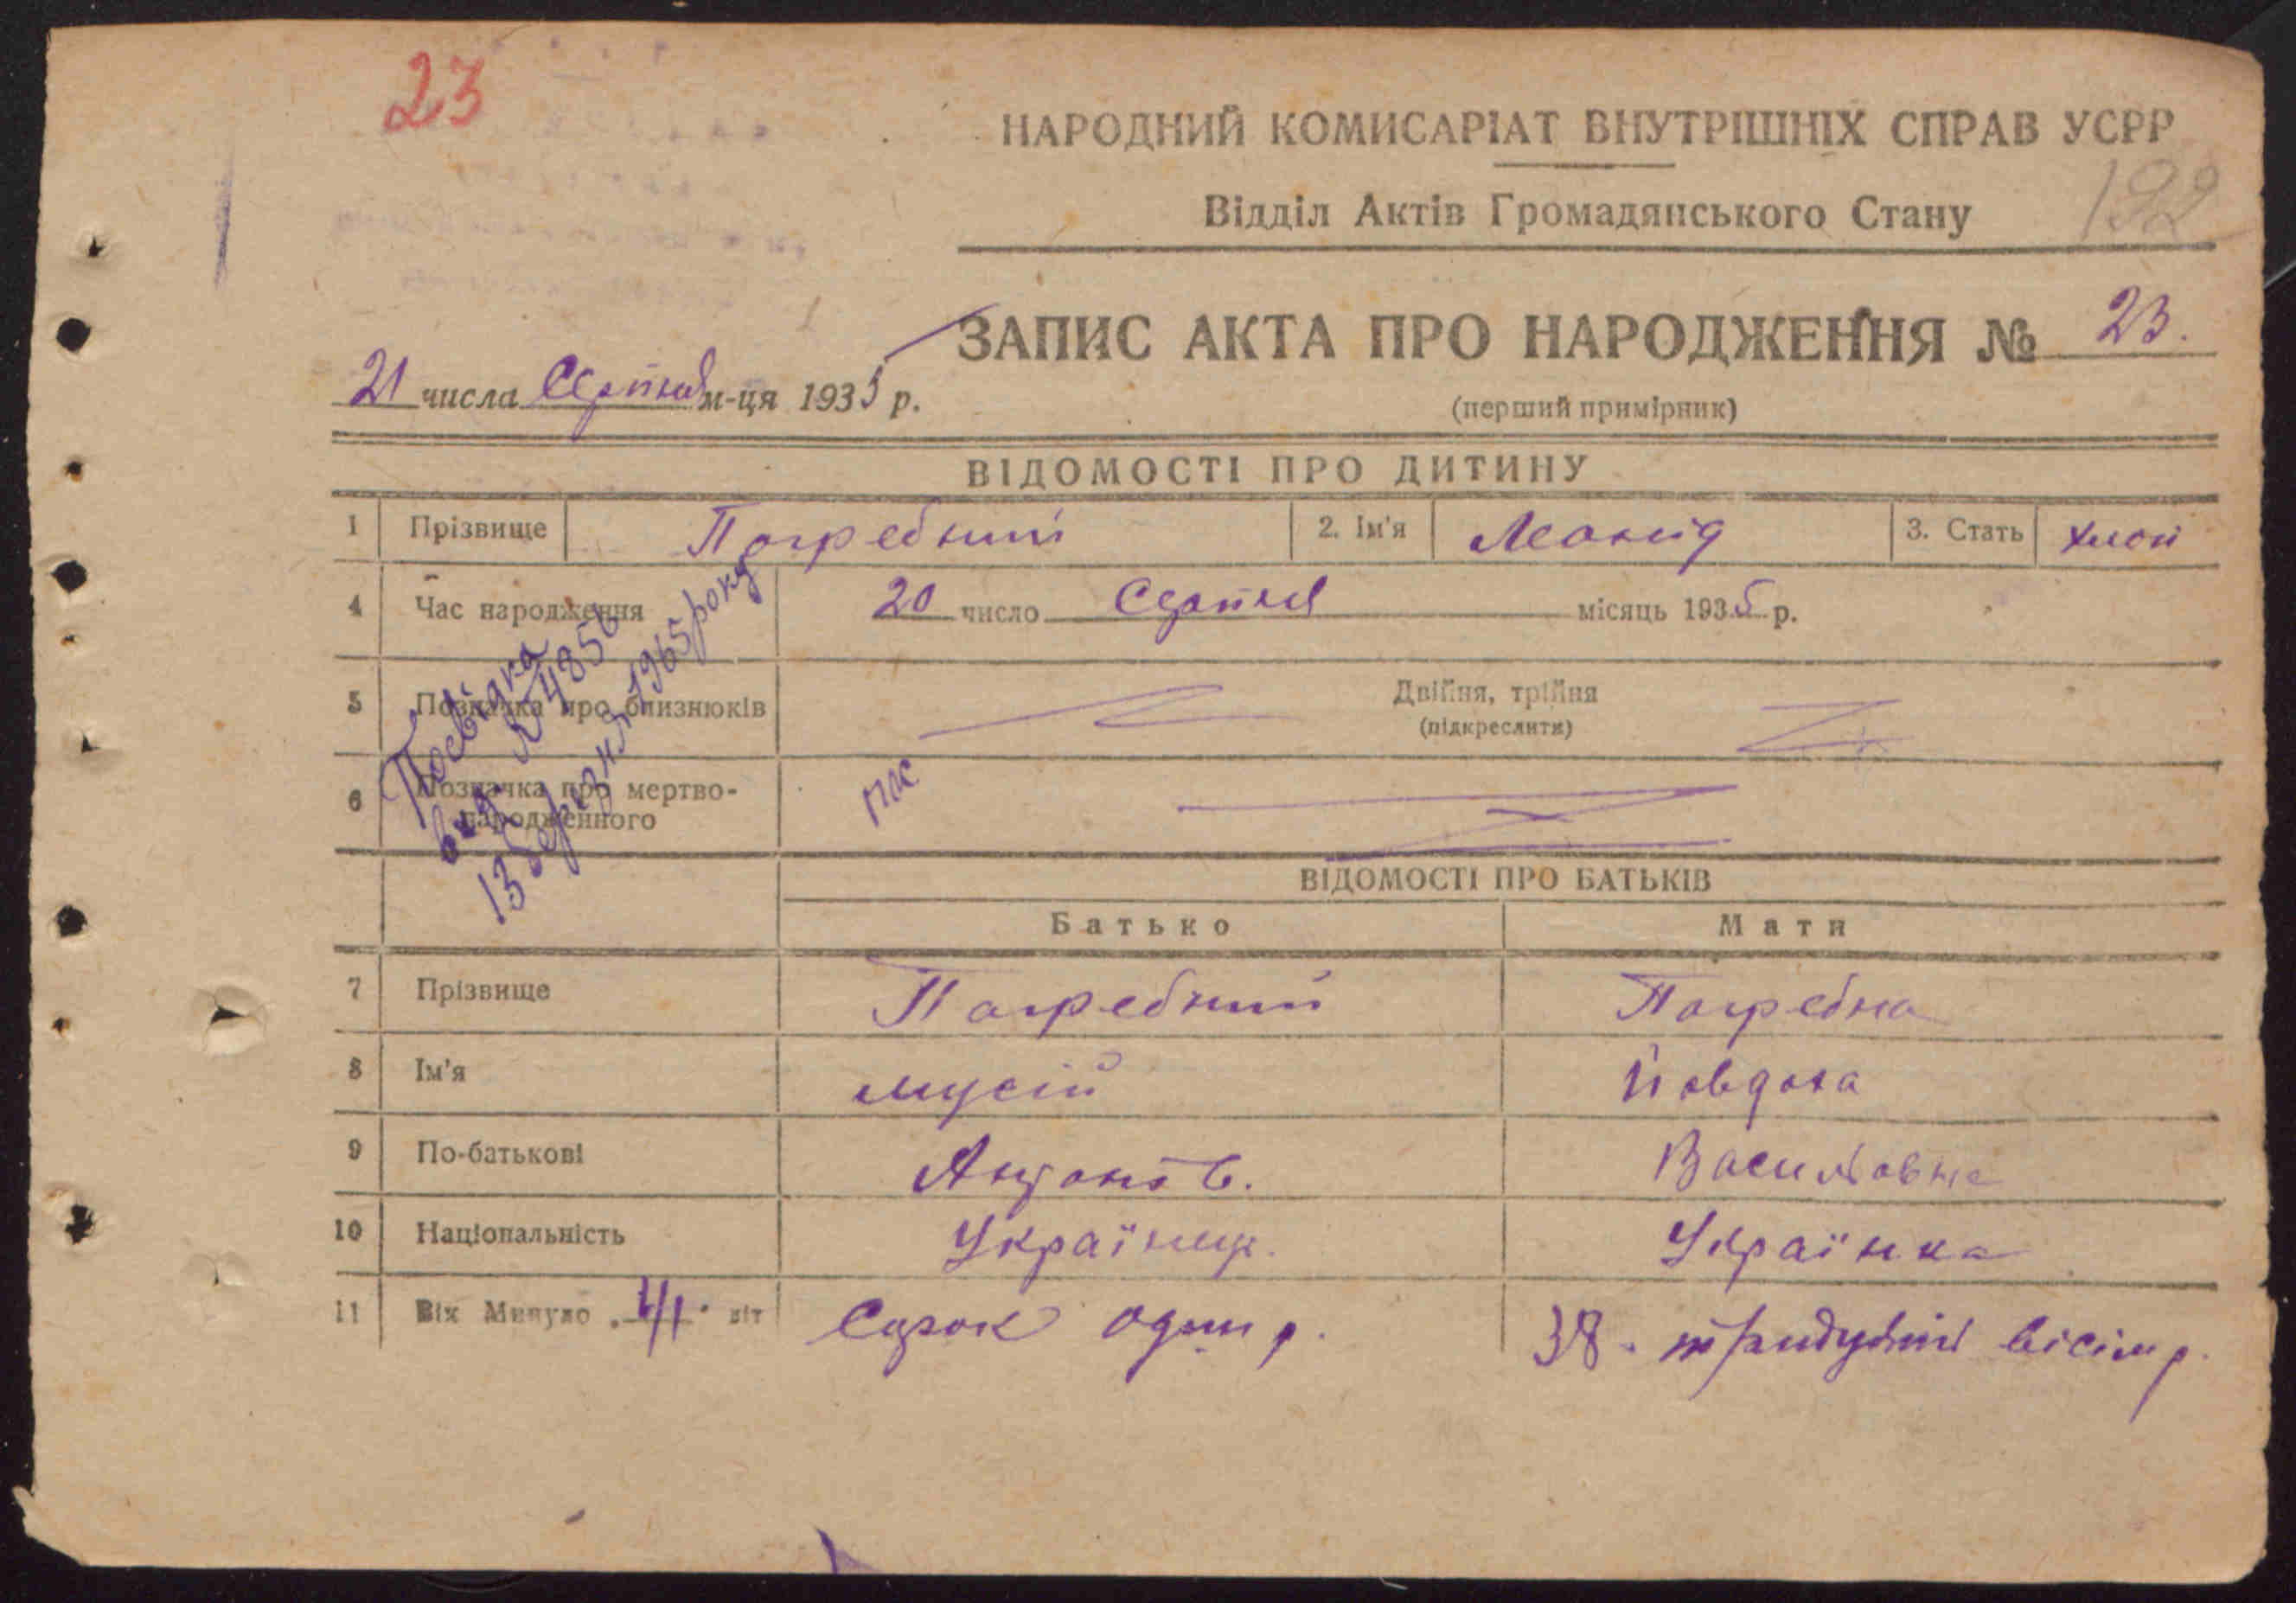 23
НАРОДНИЙ КОМИСАРІАТ ВНУТРІШНІХ СПРАВ УСРР
192
Відділ Актів Громадянського Стану
ЗАПИС АКТА ПРО НАРОДЖЕННЯ № 23.
21 числа Серпня м-ця 1935 р.
(перший примірник)
ВІДОМОСТІ ПРО ДИТИНУ
1 Прізвище Погребний 2. Ім'я Леонід 3. Стать хлоп
4 Час народження 20 число Серпня місяць 1935 р.
5 Позначка про близнюків Двійня, трійня
(підкреслити)
6 Позначка про мертво-
народженного
Посвідка
вид. № 4856
13 березня 1965 року
ВІДОМОСТІ ПРО БАТЬКІВ
Батько Мати
7 Прізвище Погребний Погребна
8 Ім'я Мусій Йовдоха
9 По-батькові Антонов. Василовна
10 Національність Українец. Українка
11 Вік Минуло 41 літ Сорок один р. 38. тридцять вісім р.